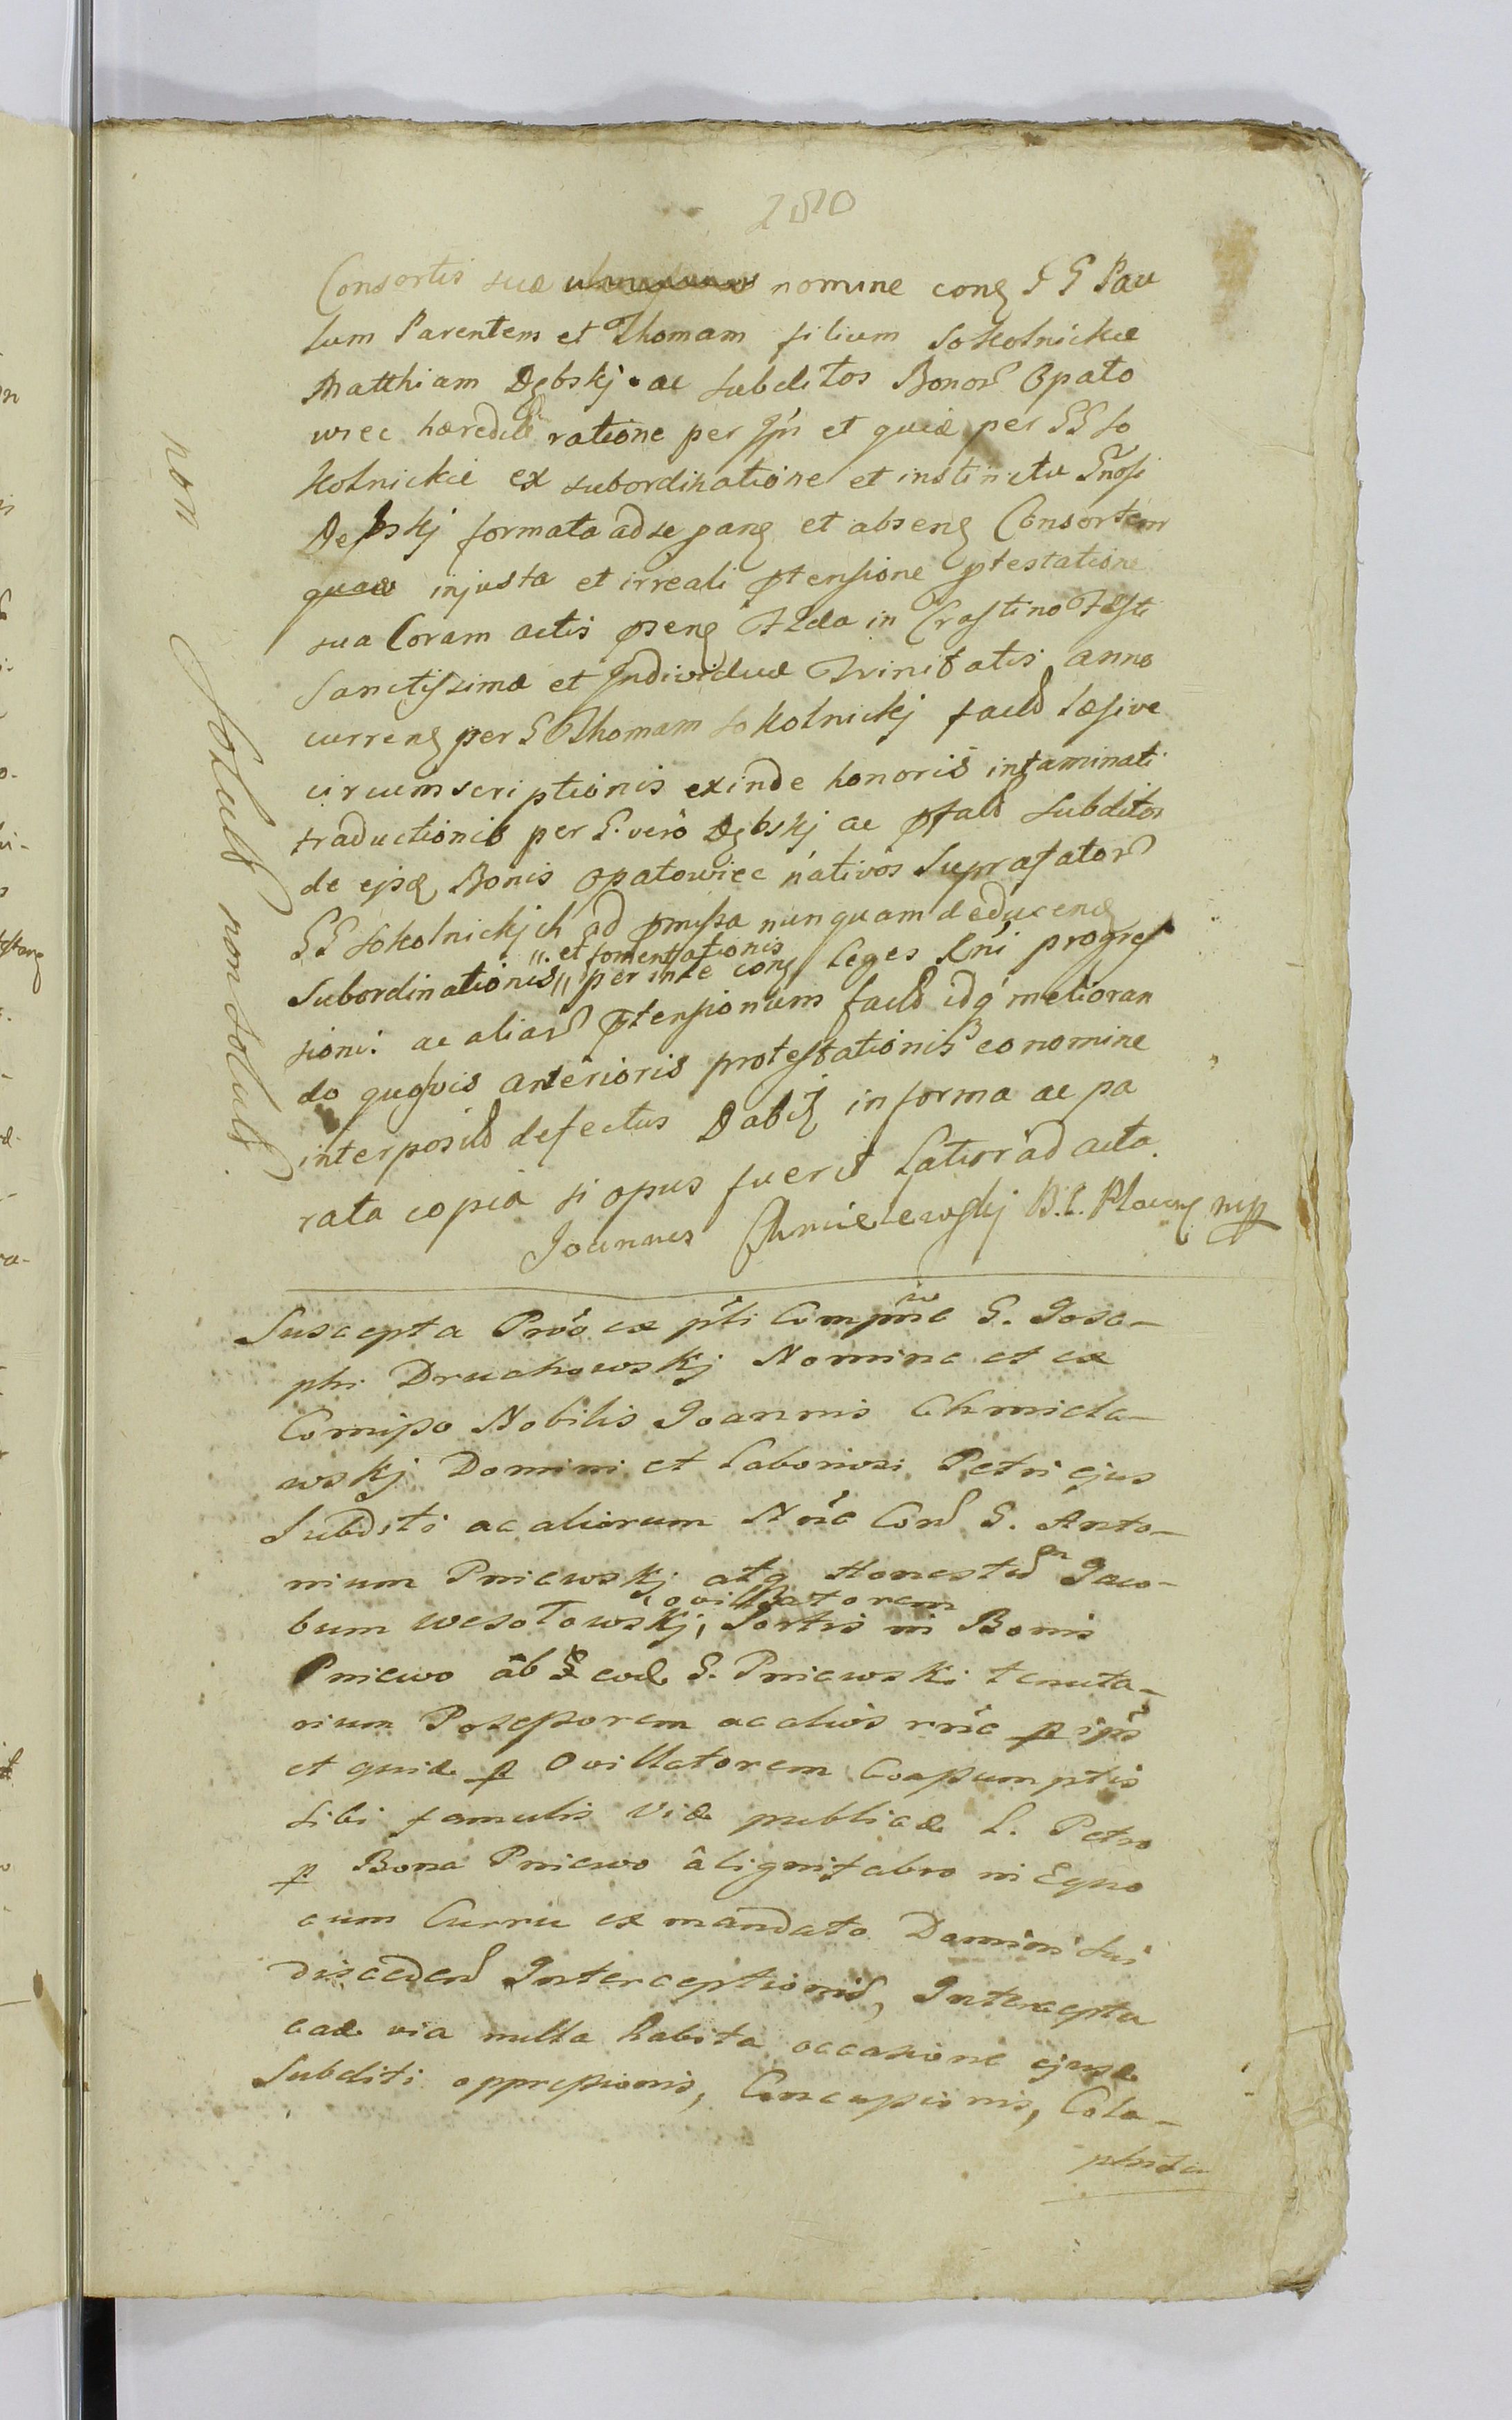 280
Consortis suæ nomine cong G G Pau
lum Parentem et Thomam filium Sokolnickie
Matthiam Dębskj ac subditos Bonor Opato
wiec hæredit ratione per Ips et quiæ per GG So
kolnickie ex subordinatione et instinctu Gnosi
Debskj formata adse pang et abseng Consortem
quaw injusta et irreali ptensione ptestatione
sua Coram actis pseng Flda in Crastino Festi
Sanctissimæ et Individuæ Trinitatis anno
curreng per G Thomam Sokolnickj factd Læsive
circumscriptionis exinde honoris intaminati
traductionis per G. vero Dębskj ac pfatd subditos
de ejsd Bonis Opatowiec nativos Suprafator
GG Sokolnickich ad pmissa nunquam deduceng
,, et fomentationis
Subordinationis ,, perinde cong Leges Rni progres
sioni: ac aliar ptensionum factd idq melioran
do quosvis anterioris protestationis eo nomine
interposit defectus Dabitq in forma ac pa
rata copia si opus fuerit Latior ad acta.
Joannes Chmielewskj B. C. Plocens mpp
non Solvit non solvit
Suscepta Prô ex pti Compne G. Josa-
phi Druchowskj Nomine et ex
Comisso Nobilis Joannis Chmiele-
wskj Domini et Laboriosi Petri ejus
Subditi ac aliorum Nne Cond G. Anto-
nium Pniewskj atq Honestum Jaco-
ovillatorem
bum Wesołowskj, Sortis in Bonis
Pniewo âb eod G. Pniewski tenuta-
rium Possessorem ac alios rne p ips
et quid p Ovillatorem Coassumptis
sibi famulis Viæ publicæ L. Petro
p Bona Pniewo â lignifabro in Equo
cum Curru ex mandato Domini sui
discedend Interceptionis, Intercepta
ead via nulla habita occasione ejusd
Subditi oppressionis, Concussionis, Cola-
phisa